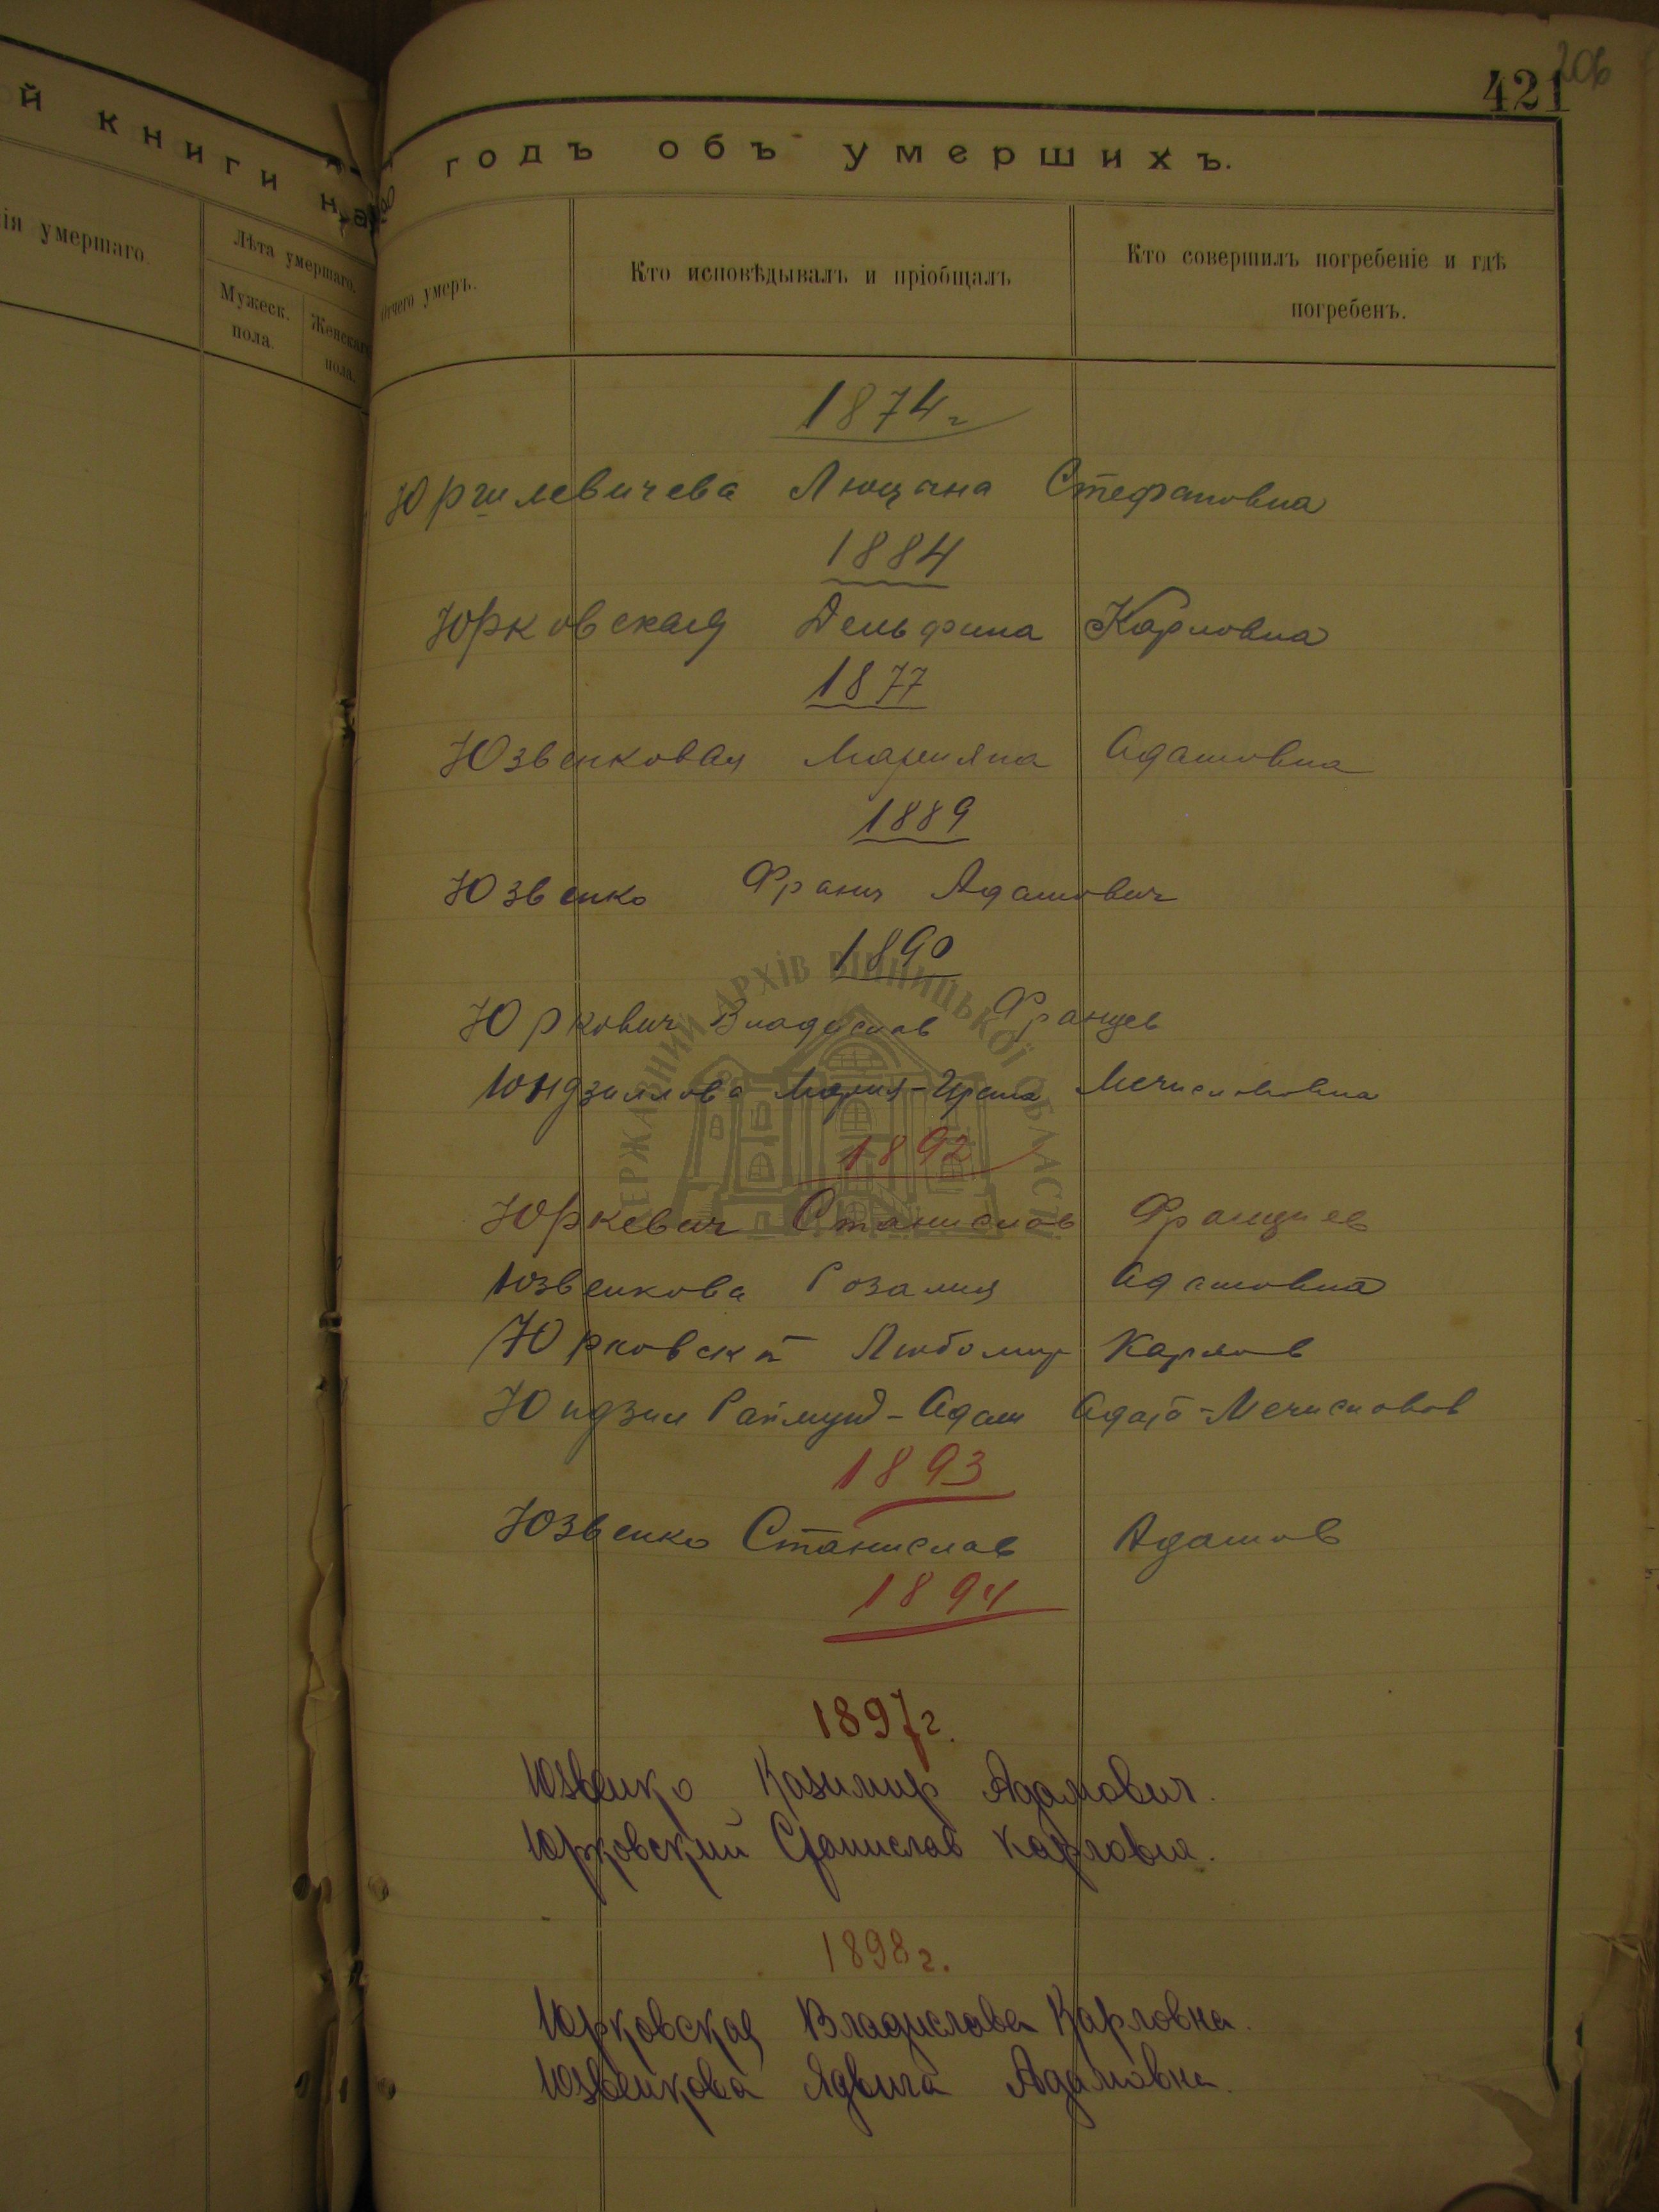 206
421
ой книги на
годъ объ умершихъ.
ія умершаго.
Лѣта умершаго.
Мужеск. пола.
Женскаго пола.
Отчего умеръ.
Кто исповѣдывалъ и пріобщалъ
Кто совершилъ погребеніе и гдѣ
погребенъ.
1874 г
Юргилевичева Люцина Стефановна
1884
Юрковская Дельфина Карловна
1877
Юзвенковая Марияна Адамовна
1889
Юзвенко Франц Адамович
1890
Юркович Владислав Францев
Юндзиллова Мария-Ирена Мечиславовна
1892
Юркевич Станислав Францıев
Юзвенкова Розалия Адамовна
Юрковский Любомир Карлов
Юндзил Раймунд-Адам Мечиславов
1893
Юзвенко Станислав Адамов
1894
1897 г.
Юзвенко Казимир Адамович.
Юрковский Станислав Карлович.
1898 г.
Юрковская Владислава Карловна.
Юзвенкова Ядвига Адамовна.
ДЕРЖАВНИЙ АРХІВ ВІННИЦЬКОЇ ОБЛАСТІ